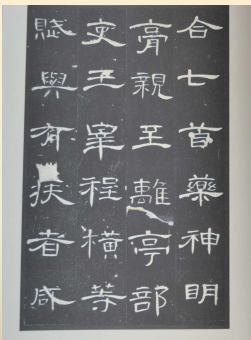 合七首藥神明
膏親至離亭部
吏王皋程橫等
賦與有疾者咸